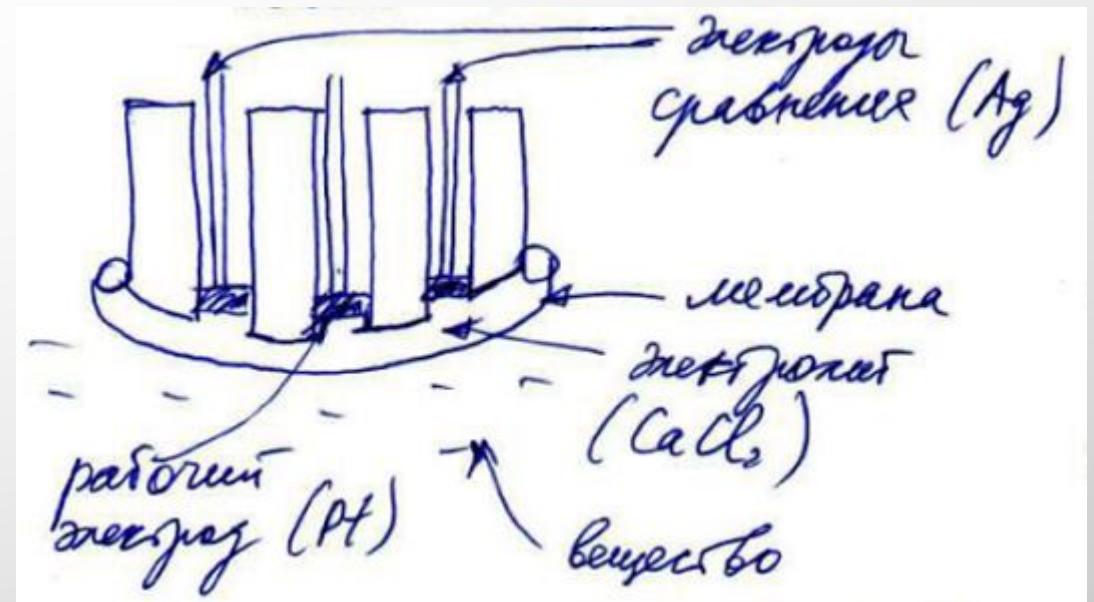 электроды
сравнения (Ag)
мембрана
электролит
(CaCl₂)
рабочий
электрод (Pt)
вещество